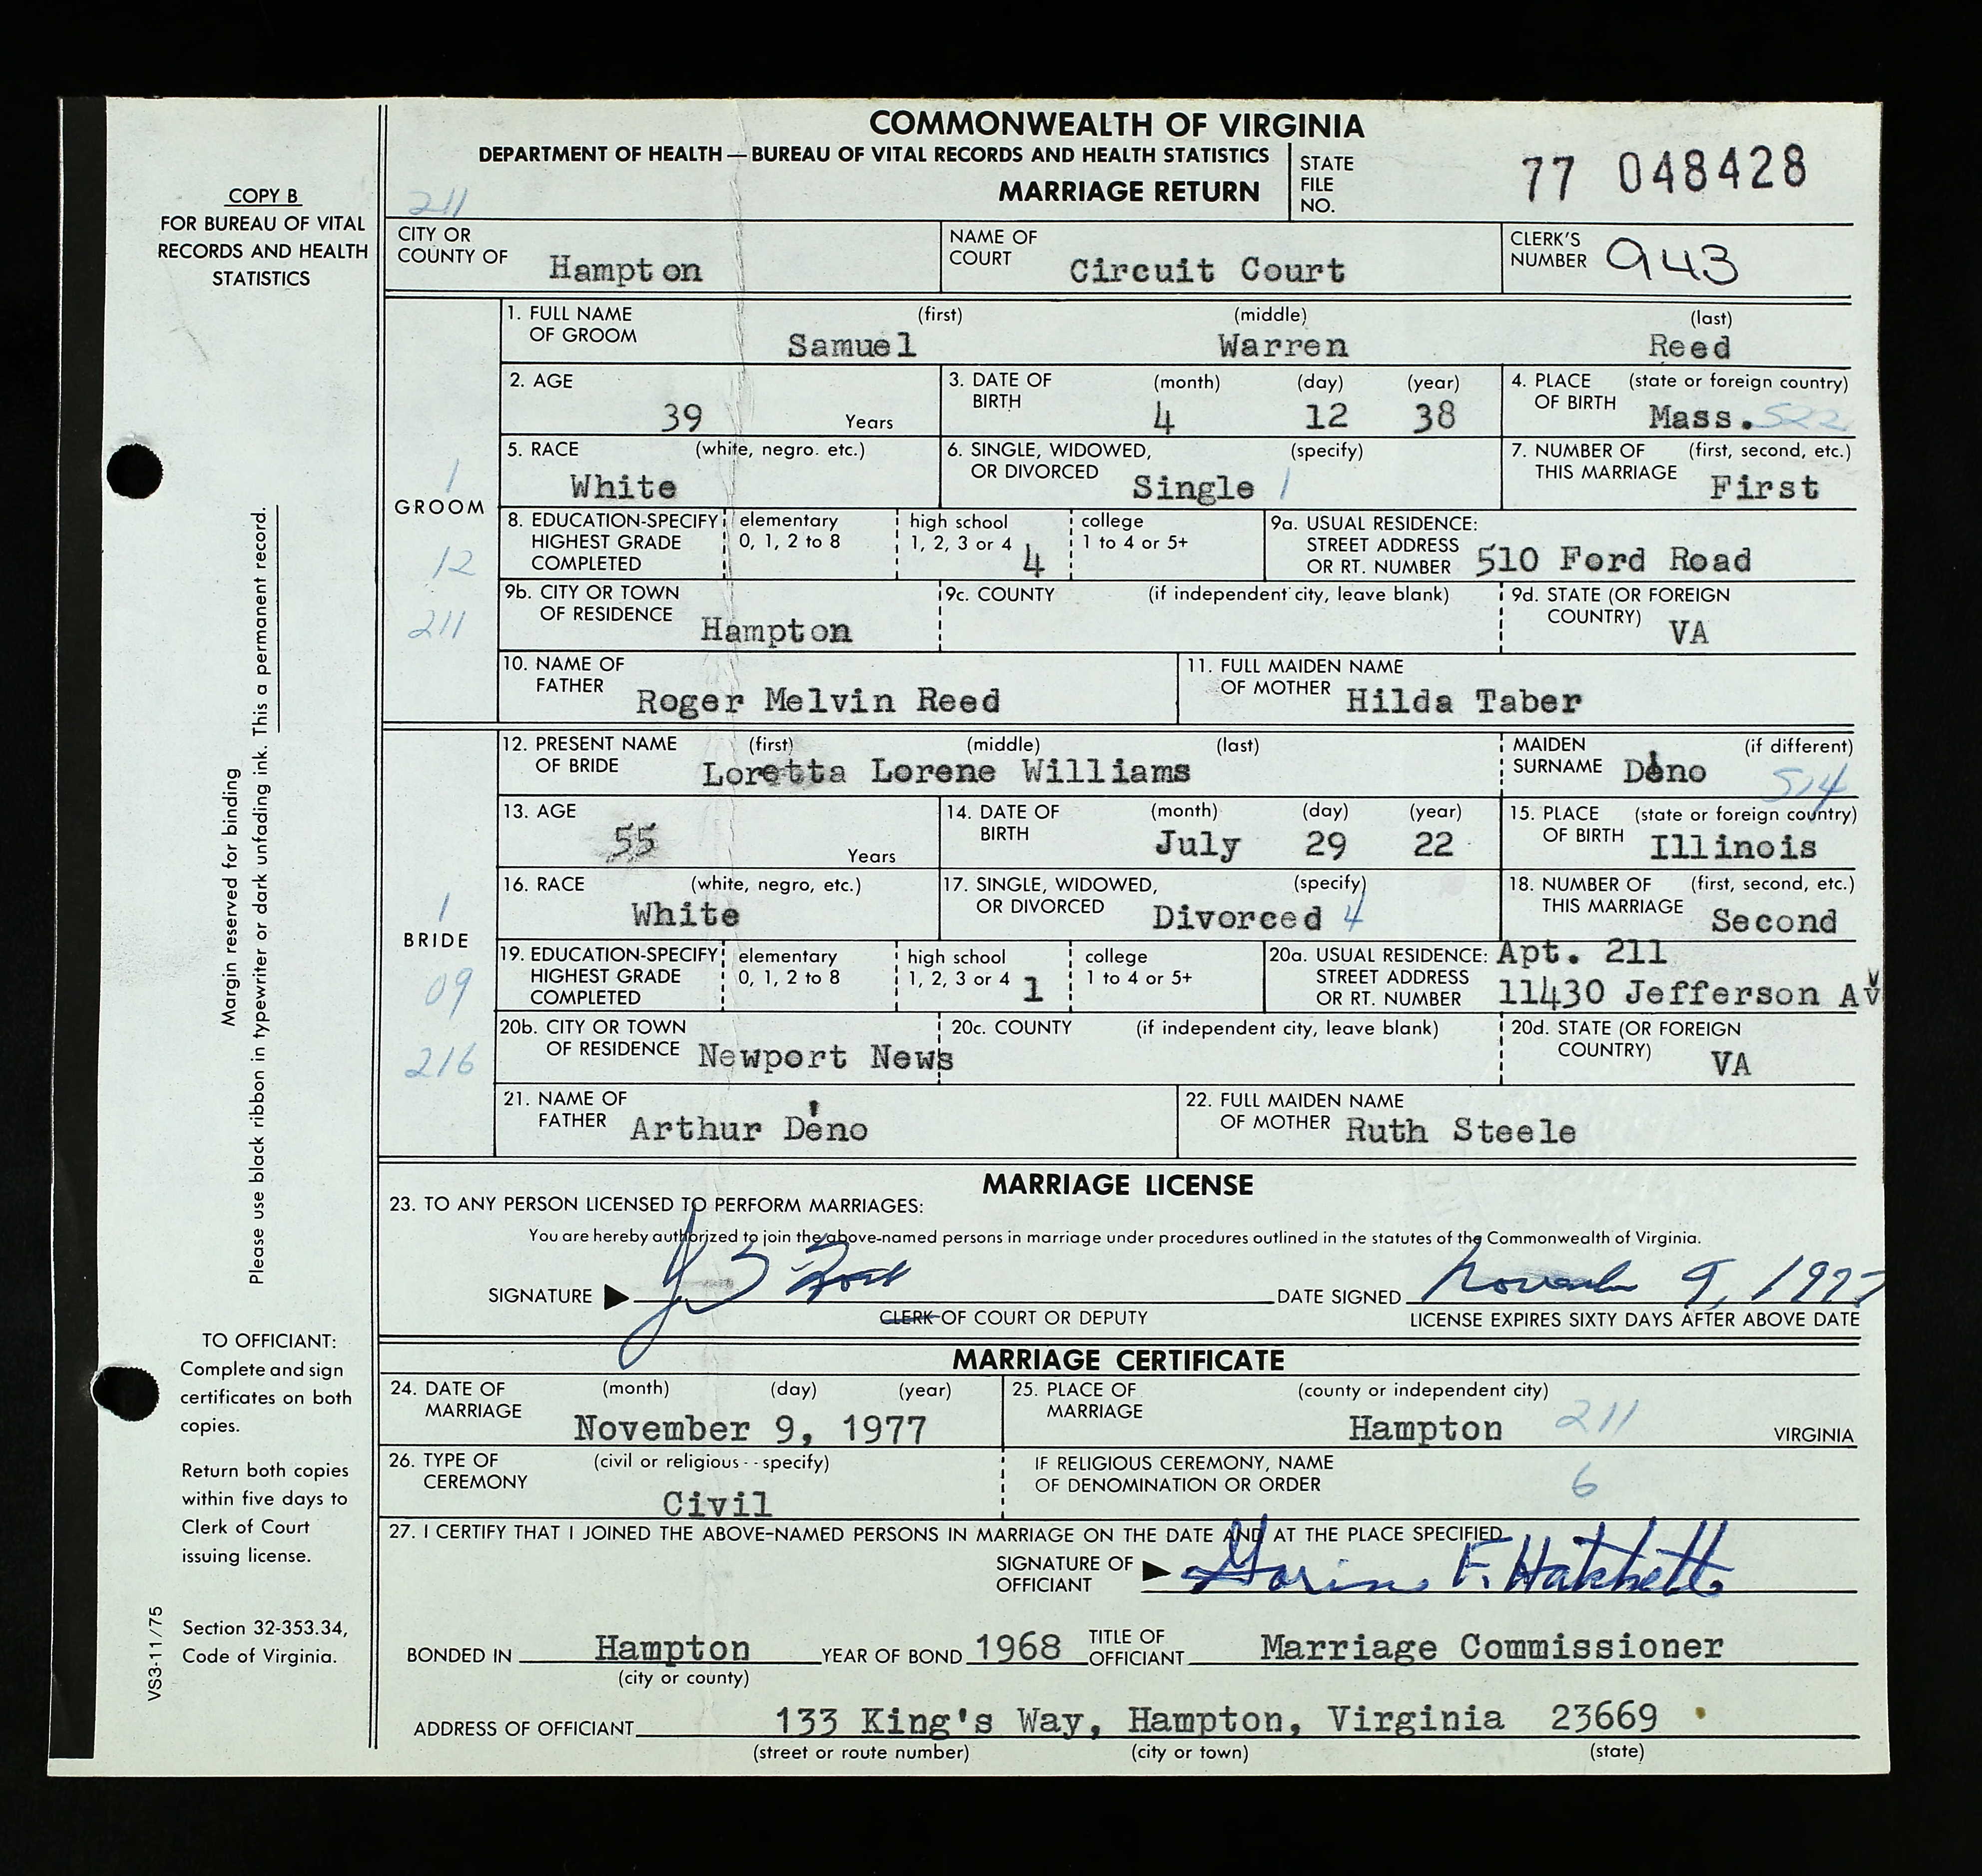 COMMONWEALTH OF VIRGINIA
DEPARTMENT OF HEALTH — BUREAU OF VITAL RECORDS AND HEALTH STATISTICS
MARRIAGE RETURN
STATE FILE NO. 77 048428
211
COPY B
FOR BUREAU OF VITAL
RECORDS AND HEALTH
STATISTICS
CITY OR COUNTY OF Hampton
NAME OF COURT Circuit Court
CLERK'S NUMBER 943
Margin reserved for binding
Please use black ribbon in typewriter or dark unfading ink. This a permanent record.
GROOM
1
12
211
1. FULL NAME OF GROOM (first) Samuel (middle) Warren (last) Reed
2. AGE 39 Years
3. DATE OF BIRTH (month) 4 (day) 12 (year) 38
4. PLACE OF BIRTH (state or foreign country) Mass. 522
5. RACE (white, negro. etc.) White
6. SINGLE, WIDOWED, OR DIVORCED (specify) Single 1
7. NUMBER OF THIS MARRIAGE (first, second, etc.) First
8. EDUCATION-SPECIFY HIGHEST GRADE COMPLETED elementary 0, 1, 2 to 8 high school 1, 2, 3 or 4 4 college 1 to 4 or 5+
9a. USUAL RESIDENCE: STREET ADDRESS OR RT. NUMBER 510 Ford Road
9b. CITY OR TOWN OF RESIDENCE Hampton
9c. COUNTY (if independent city, leave blank)
9d. STATE (OR FOREIGN COUNTRY) VA
10. NAME OF FATHER Roger Melvin Reed
11. FULL MAIDEN NAME OF MOTHER Hilda Taber
BRIDE
1
09
216
12. PRESENT NAME OF BRIDE (first) (middle) (last) Loretta Lorene Williams
MAIDEN SURNAME (if different) Déno 514
13. AGE 55 Years
14. DATE OF BIRTH (month) July (day) 29 (year) 22
15. PLACE OF BIRTH (state or foreign country) Illinois
16. RACE (white, negro, etc.) White
17. SINGLE, WIDOWED, OR DIVORCED (specify) Divorced 4
18. NUMBER OF THIS MARRIAGE (first, second, etc.) Second
19. EDUCATION-SPECIFY HIGHEST GRADE COMPLETED elementary 0, 1, 2 to 8 high school 1, 2, 3 or 4 1 college 1 to 4 or 5+
20a. USUAL RESIDENCE: STREET ADDRESS OR RT. NUMBER Apt. 211 11430 Jefferson Av
20b. CITY OR TOWN OF RESIDENCE Newport News
20c. COUNTY (if independent city, leave blank)
20d. STATE (OR FOREIGN COUNTRY) VA
21. NAME OF FATHER Arthur Déno
22. FULL MAIDEN NAME OF MOTHER Ruth Steele
MARRIAGE LICENSE
23. TO ANY PERSON LICENSED TO PERFORM MARRIAGES:
You are hereby authorized to join the above-named persons in marriage under procedures outlined in the statutes of the Commonwealth of Virginia.
SIGNATURE
DATE SIGNED November 9, 1977
CLERK OF COURT OR DEPUTY
LICENSE EXPIRES SIXTY DAYS AFTER ABOVE DATE
MARRIAGE CERTIFICATE
24. DATE OF MARRIAGE (month) (day) (year) November 9, 1977
25. PLACE OF MARRIAGE (county or independent city) Hampton 211 VIRGINIA
26. TYPE OF CEREMONY (civil or religious - - specify) Civil
IF RELIGIOUS CEREMONY, NAME OF DENOMINATION OR ORDER 6
27. I CERTIFY THAT I JOINED THE ABOVE-NAMED PERSONS IN MARRIAGE ON THE DATE AND AT THE PLACE SPECIFIED
SIGNATURE OF OFFICIANT F. Hatchett
BONDED IN Hampton (city or county)
YEAR OF BOND 1968
TITLE OF OFFICIANT Marriage Commissioner
ADDRESS OF OFFICIANT 133 King's Way, Hampton, Virginia 23669
(street or route number) (city or town) (state)
TO OFFICIANT:
Complete and sign
certificates on both
copies.
Return both copies
within five days to
Clerk of Court
issuing license.
Section 32-353.34,
Code of Virginia.
VS3-11/75